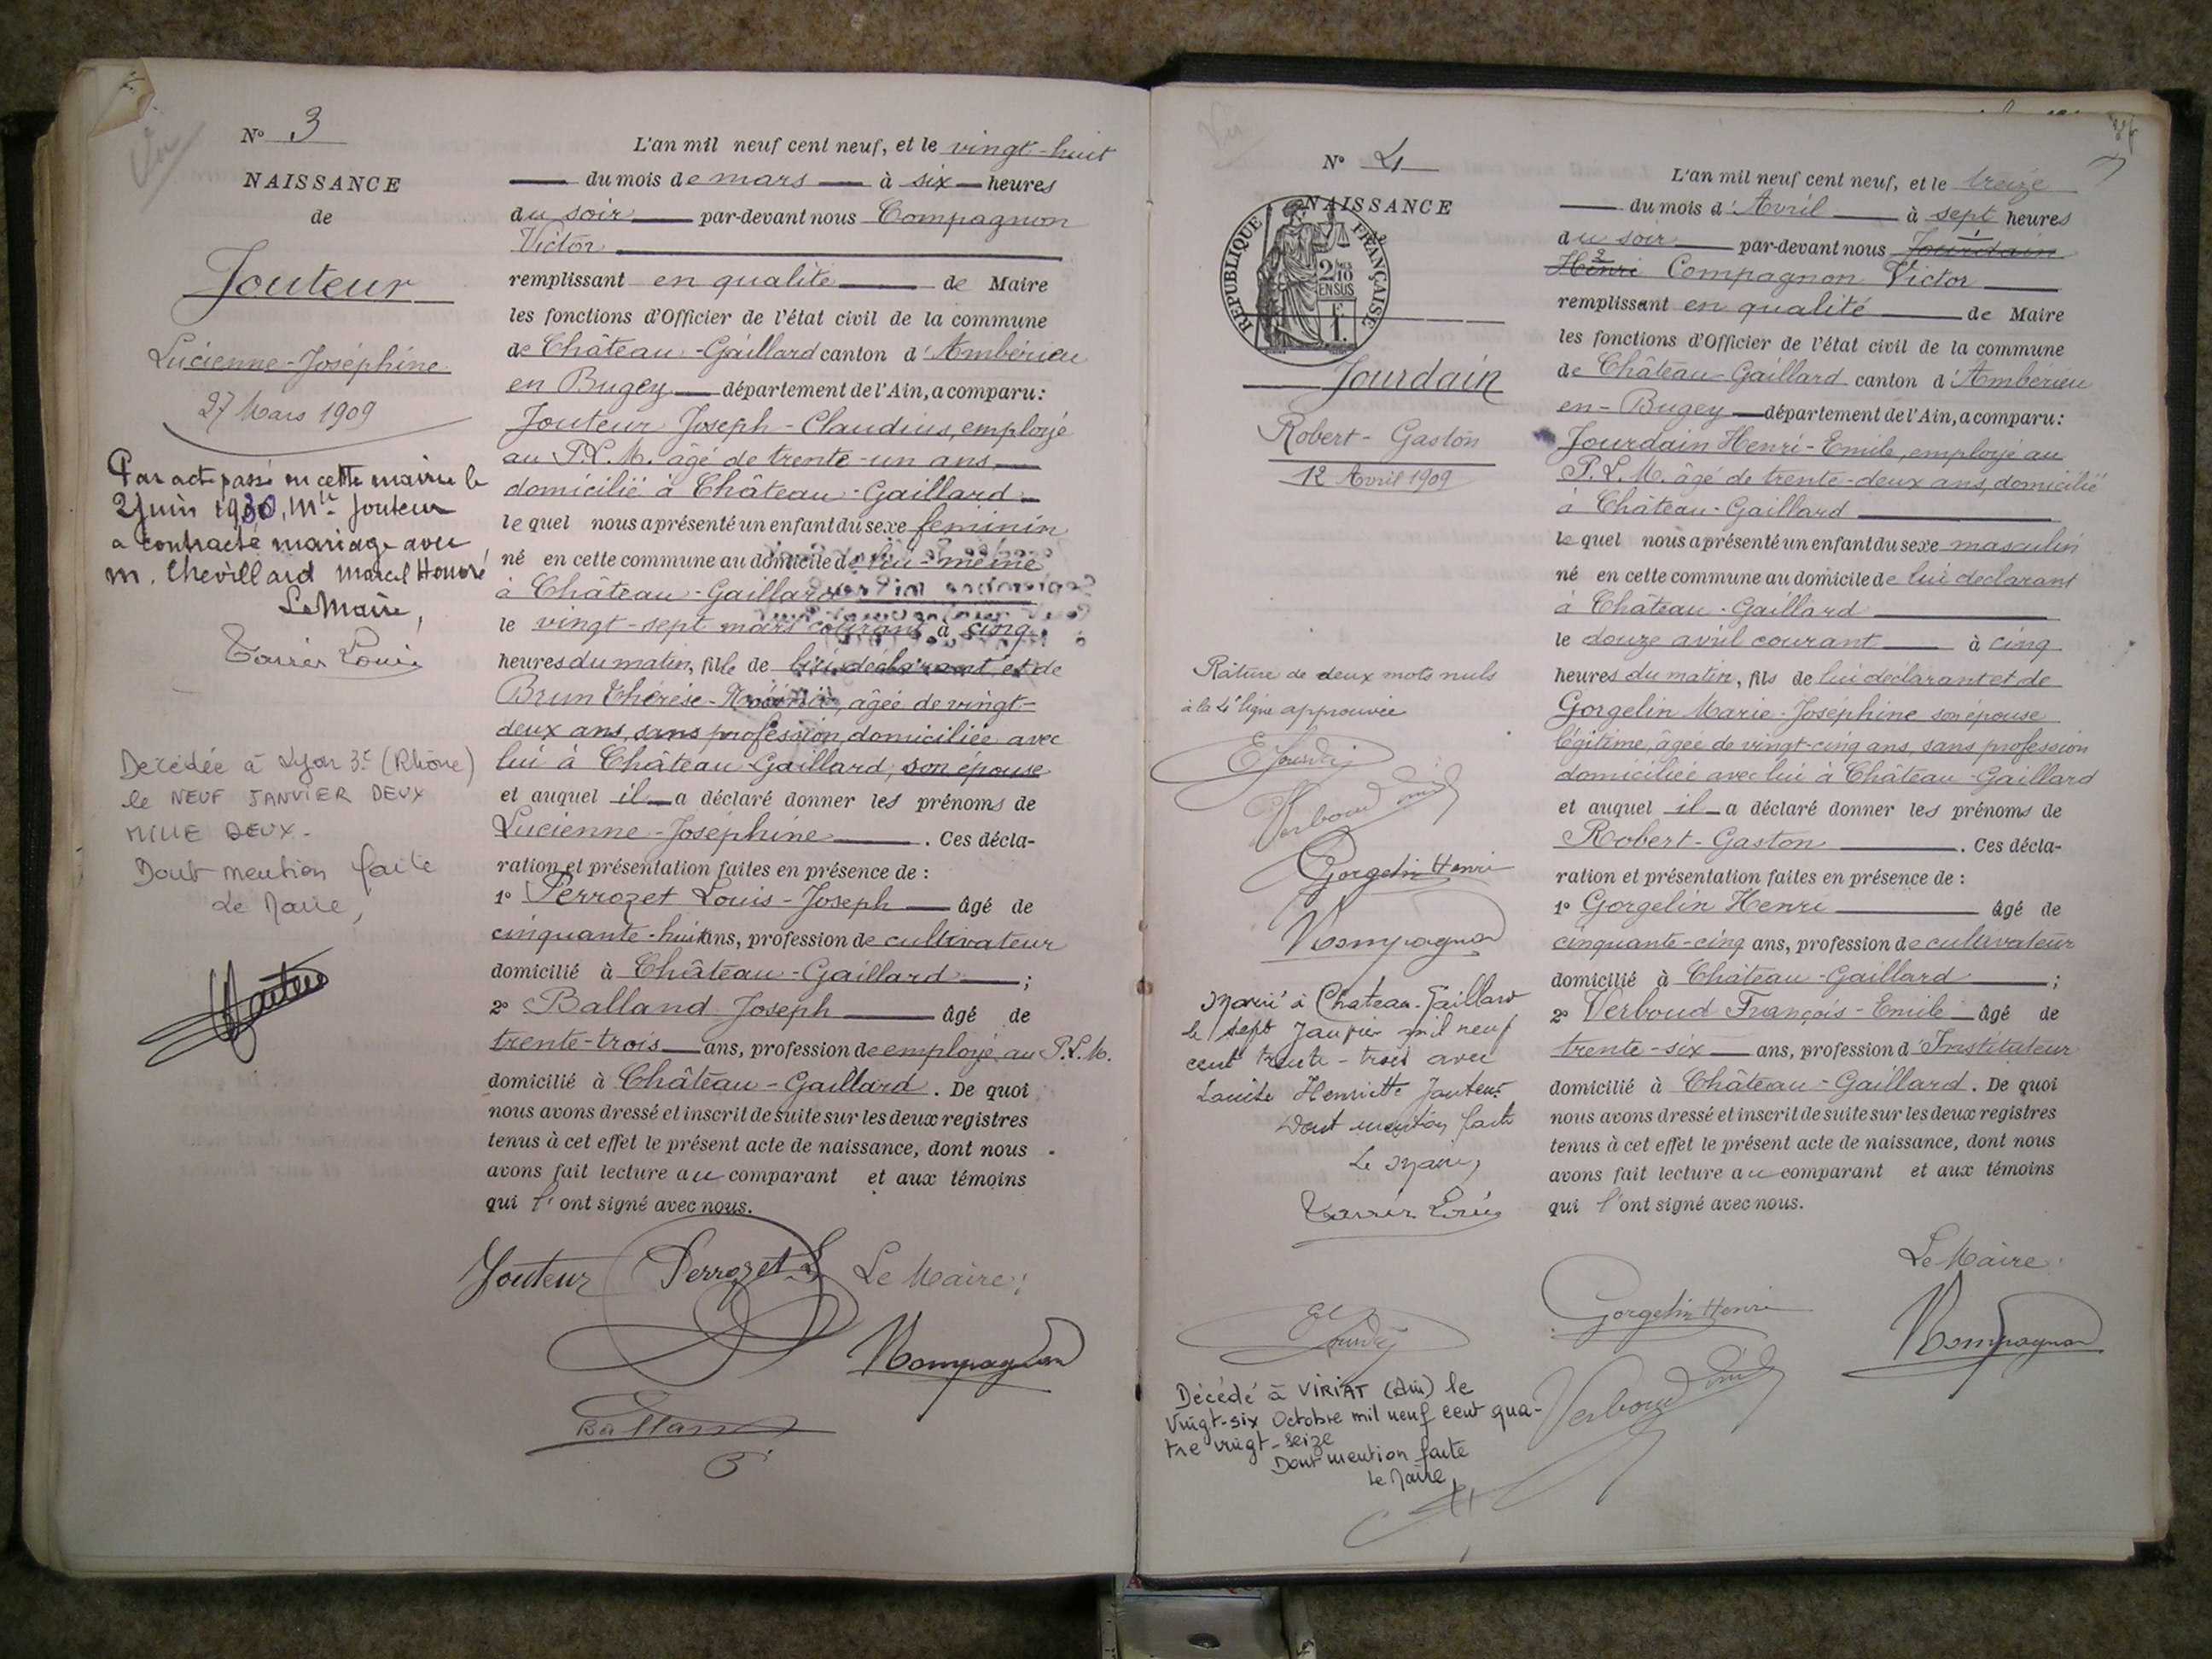 Vu
N° 3
NAISSANCE
de
Jouteur
Lucienne-Joséphine
27 Mars 1909
Par acte passé en cette mairie le
2 juin 1930, Mlle Jouteur
a contracté mariage avec
M. Chevillard Marcel Honoré
Le Maire,
Tarrier Louis
Décédée à Lyon 3e (Rhône)
le NEUF JANVIER DEUX
MILLE DEUX.
Dont mention faite
Le Maire,
L'an mil neuf cent neuf, et le vingt-huit
du mois de mars à six heures
du soir par-devant nous Compagnon
Victor
remplissant en qualité de Maire
les fonctions d'Officier de l'état civil de la commune
de Château-Gaillard canton d'Ambérieu
en Bugey département de l'Ain, a comparu:
Jouteur Joseph-Claudius, employé
au P.L.M. âgé de trente-un ans
domicilié à Château-Gaillard
lequel nous a présenté un enfant du sexe feminin
né en cette commune au domicile de lui-même
à Château-Gaillard
le vingt-sept mars courant à cinq
heures du matin, fille de lui déclarant et de
Brun Thérèse- , âgée de vingt-
deux ans, sans profession, domiciliée avec
lui à Château-Gaillard, son épouse
et auquel il a déclaré donner les prénoms de
Lucienne-Joséphine . Ces décla-
ration et présentation faites en présence de :
1° Perrozet Louis-Joseph âgé de
cinquante-huit ans, profession de cultivateur
domicilié à Château-Gaillard ;
2° Balland Joseph âgé de
trente-trois ans, profession de employé au P.L.M.
domicilié à Château-Gaillard. De quoi
nous avons dressé et inscrit de suite sur les deux registres
tenus à cet effet le présent acte de naissance, dont nous
avons fait lecture au comparant et aux témoins
qui l'ont signé avec nous.
Jouteur Perrozet L Le Maire:
VCompagnon
Balland
J
Vu
N° 4
NAISSANCE
RÉPUBLIQUE FRANÇAISE
2/10 EN SUS
1 F.
Jourdain
Robert-Gaston
12 Avril 1909
Rature de deux mots nuls
à la 4e ligne approuvée
E Jourdain
Verboud Emile
Gorgelin Henri
VCompagnon
Marié à Chateau-Gaillard
le sept Janvier mil neuf
cent trente-trois avec
Louise Henriette Jouteur
Dont mention faite
Le Maire,
Tarrier Louis
Décédé à VIRIAT (Ain) le
Vingt-six Octobre mil neuf cent qua-
tre vingt-seize
Dont mention faite
Le Maire,
L'an mil neuf cent neuf, et le treize
du mois d'Avril à sept heures
du soir par-devant nous Jourdain
Henri Compagnon Victor
remplissant en qualité de Maire
les fonctions d'Officier de l'état civil de la commune
de Château-Gaillard canton d'Ambérieu
en-Bugey département de l'Ain, a comparu:
Jourdain Henri-Emile, employé au
P.L.M. âgé de trente-deux ans, domicilié
à Château-Gaillard
lequel nous a présenté un enfant du sexe masculin
né en cette commune au domicile de lui déclarant
à Château-Gaillard
le douze avril courant à cinq
heures du matin, fils de lui déclarant et de
Gorgelin Marie-Joséphine son épouse
légitime, âgée de vingt-cinq ans, sans profession
domiciliée avec lui à Château-Gaillard
et auquel il a déclaré donner les prénoms de
Robert-Gaston . Ces décla-
ration et présentation faites en présence de :
1° Gorgelin Henri âgé de
cinquante-cinq ans, profession de cultivateur
domicilié à Château-Gaillard ;
2° Verboud François-Emile âgé de
trente-six ans, profession d'Instituteur
domicilié à Château-Gaillard. De quoi
nous avons dressé et inscrit de suite sur les deux registres
tenus à cet effet le présent acte de naissance, dont nous
avons fait lecture au comparant et aux témoins
qui l'ont signé avec nous.
Le Maire:
Gorgelin Henri
VCompagnon
Verboud Emile